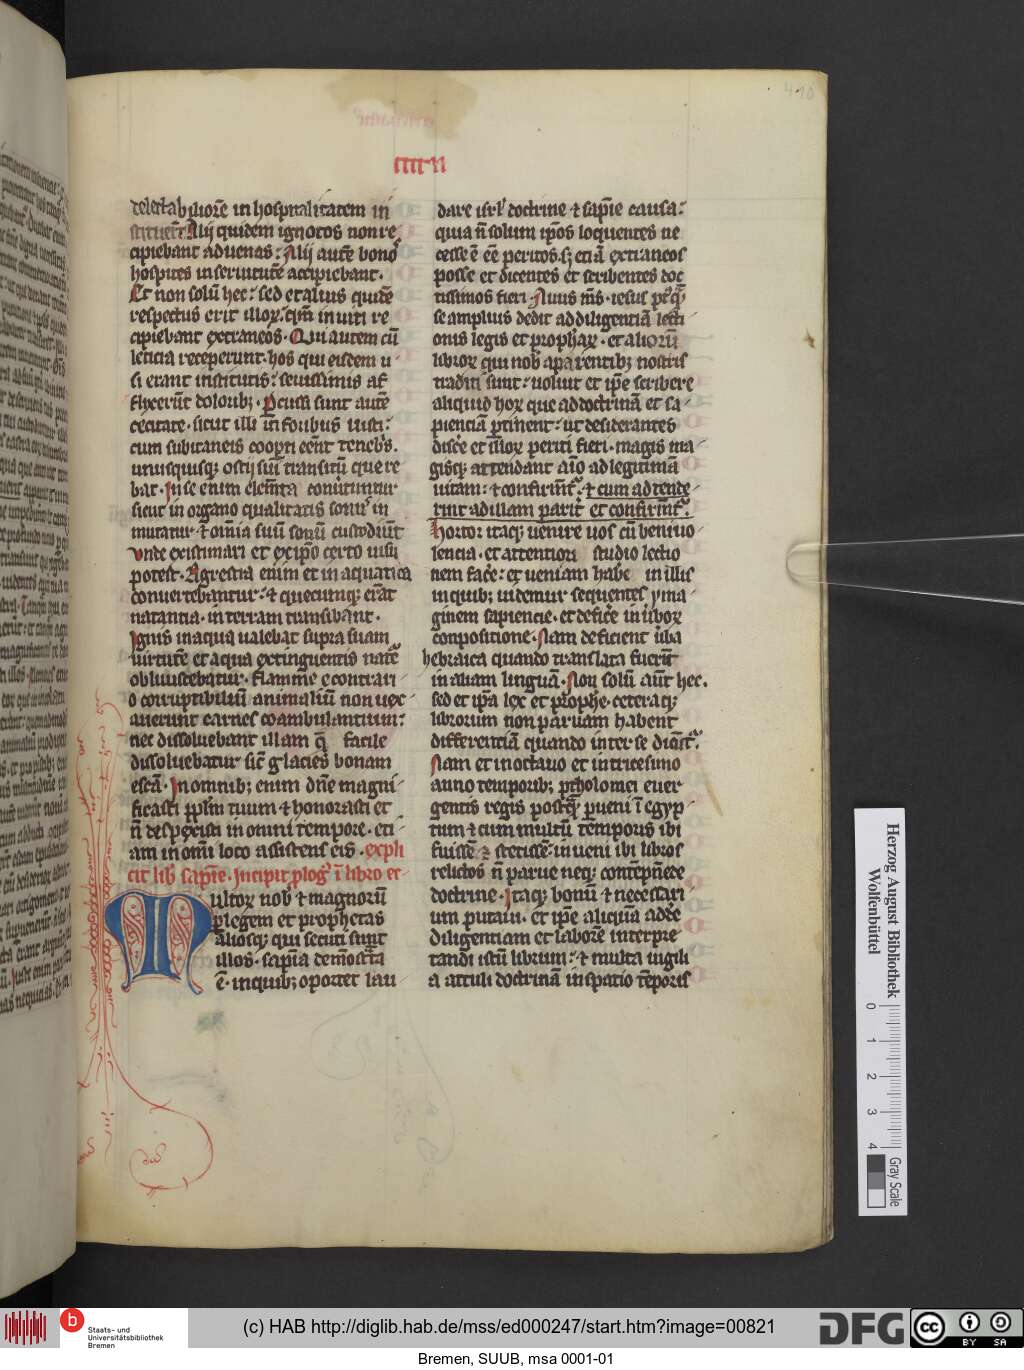 410
detestabiliorē in hospitalitatem in
stituerūt Alij quidem ignotos non re
cipiebant aduenas: Alij autē bonos
hospites in seruitutē accipiebant.
Et non solū hec: sed et alius quidē
respectus erit illoꝝ. qm̄ inuiti re
cipiebant extraneos. Qui autem cū
leticia receperunt. hos qui eisdem u
si erant institutis: seuissimis af
flixerūt dolorib; Pcussi sunt autē
cecitate. sicut illi in foribus iusti:
cum subitaneis cooꝑti eēnt tenebs.
unusquisq; ostij sui transitū quere
bat. In se enim elemēta conūtuntur
sicut in organo qualitatis sonus in
mutatur ⁊ omīa suū sonū custodiūt
Vnde existimari et ex ipo certo uisu
potest. Agrestia enim et in aquatica
conuertebantur: ⁊ quecumq; erāt
natantia. in terram transibant.
Ignis in aqua ualebat supra suam
uirtutē et aqua extinguentis natē
obliuiscebatur. Flamme econtrari
o corruptibiliū animaliū non uex
auerunt carnes coambulantium:
nec dissoluebant illam q̄ facile
dissoluebatur sic̄ glacies bonam
escā. In omnib; enim dn̄e magni
ficasti pplm̄ tuum ⁊ honorasti et
n̄ despexisti in omni tempore. eti
am in om̄i loco assistens eis. expli
cit lib sapīe. Incipit plogꝰ ī libro ec
Multoꝝ nob ⁊ magnorū
p legem et prophetas
aliosq; qui secuti sunt
illos. sapīa demōstrata
ē. in quib; oportet lau
dare isrl̄ doctrine ⁊ sapīe causa:
quia n̄ solum ipos loquentes ne
cesse ē eē peritos. s; etiā extraneos
posse et dicentes et scribentes doc
tissimos fieri. Auus ms̄. iesus ptq̄
se amplius dedit ad diligentiā lecti
onis legis et prophaꝝ. et aliorū
libroꝝ qui nob a parentib; nostris
traditi sunt: uoluit et ipe scribere
aliquid hoꝝ que ad doctrinā et sa
pienciā ptinent: ut desiderantes
discē et illoꝝ periti fieri. magis ma
gisq; attendant aīo ad legitimā
uitam: ⁊ confirmēt. ⁊ cum ad tende
rint ad illam parit et confirmēt.
Hortor itaq; uenire uos cū beniuo
lencia. et attentiori studio lectio
nem facē: et ueniam habe in illis
in quib; uidemur sequentes yma
ginem sapiencie. et deficē in ūboꝝ
conpositione. Nam deficient ūba
hebraica quando translata fuerīt
in aliam linguā. Non solū aūt hec.
sed et ipa lex et prophe. ceteraq;
librorum non paruam habent
differentiā quando inter se dicūt.
Nam et in octauo et in tricesimo
anno temporib; ptholomei euer
gentis regis postq̄ pueni ī egyp
tum ⁊ cum multū temporis ibi
fuissē ⁊ stetissē: inueni ibi libros
relictos n̄ parue neq; contepnēde
doctrine. Itaq; bonū ⁊ necessari
um putaui. et ipe aliquā addē
diligentiam et laborē interpre
tandi istū librum: ⁊ multa uigili
a attuli doctrinā in spatio tēporis
Herzog August Bibliothek
Wolfenbüttel
0 1 2 3 4
Gray Scale
b
Staats- und
Universitätsbibliothek
Bremen
(c) HAB http://diglib.hab.de/mss/ed000247/start.htm?image=00821
DFG
cc BY SA
Bremen, SUUB, msa 0001-01